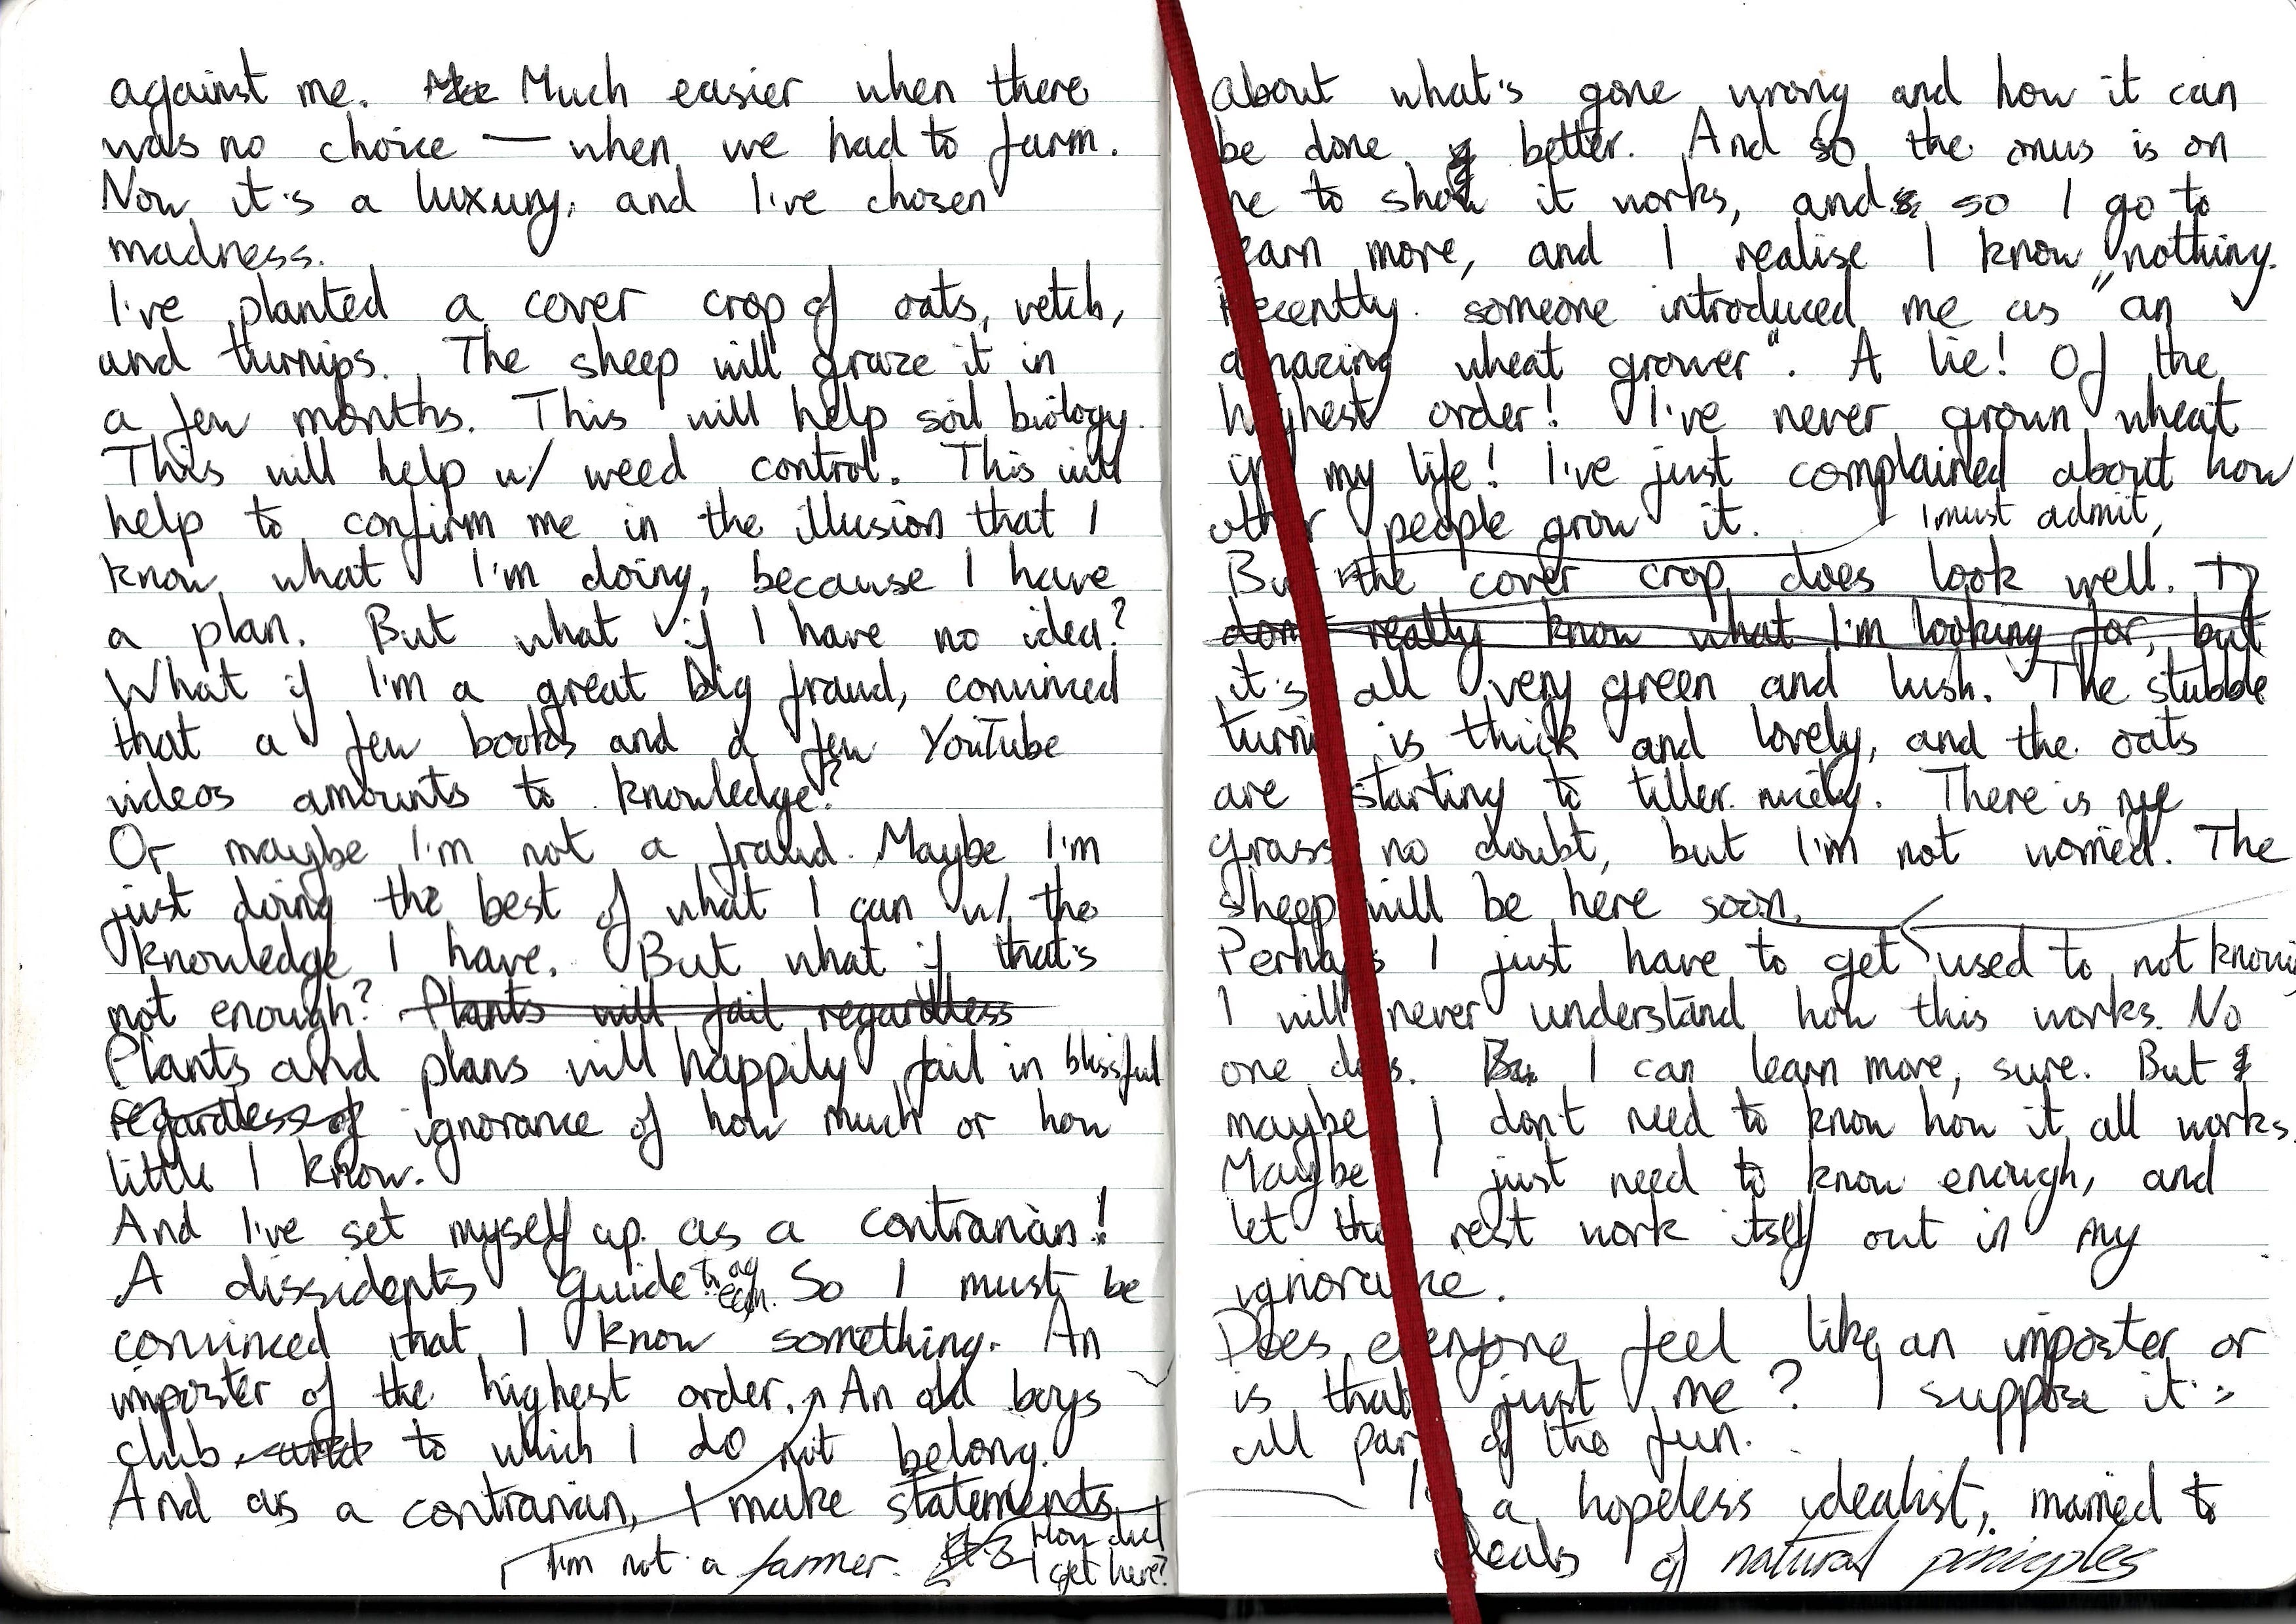 against me. Much easier when there
was no choice — when we had to farm.
Now it's a luxury, and I've chosen
madness.
I've planted a cover crop of oats, vetch,
and turnips. The sheep will graze it in
a few months. This will help soil biology.
This will help w/ weed control. This will
help to confirm me in the illusion that I
know what I'm doing, because I have
a plan. But what if I have no idea?
What if I'm a great big fraud, convinced
that a few books and a few YouTube
videos amounts to knowledge?
Or maybe I'm not a fraud. Maybe I'm
just doing the best of what I can w/ the
knowledge I have. But what if that's
not enough? Plants will fail regardless
Plants and plans will happily fail in blissful
regardless of ignorance of how much or how
little I know.
And I've set myself up as a contrarian!
A dissidents guide to ag So I must be
convinced that I know something. An
imposter of the highest order. An old boys
club to which I do not belong.
And as a contrarian, I make statements
I'm not a farmer. How did
I get here?
about what's gone wrong and how it can
be done better. And so the onus is on
me to show it works, and so I go to
learn more, and I realise I know nothing.
Recently someone introduced me as "an
amazing wheat grower". A lie! Of the
highest order! I've never grown wheat
in my life! I've just complained about how
other people grow it. I must admit,
But the cover crop does look well. I
don't really know what I'm looking for, but
it's all very green and lush. The stubble
turnip is thick and lovely, and the oats
are starting to tiller nicely. There is rye
grass no doubt, but I'm not worried. The
sheep will be here soon.
Perhaps I just have to get used to not knowing
I will never understand how this works. No
one does. I can learn more, sure. But
maybe I don't need to know how it all works.
Maybe I just need to know enough, and
let the rest work itself out in my
ignorance.
Does everyone feel like an imposter or
is that just me? I suppose it's
all part of the fun.
I'm a hopeless idealist, married to
ideals of natural principles